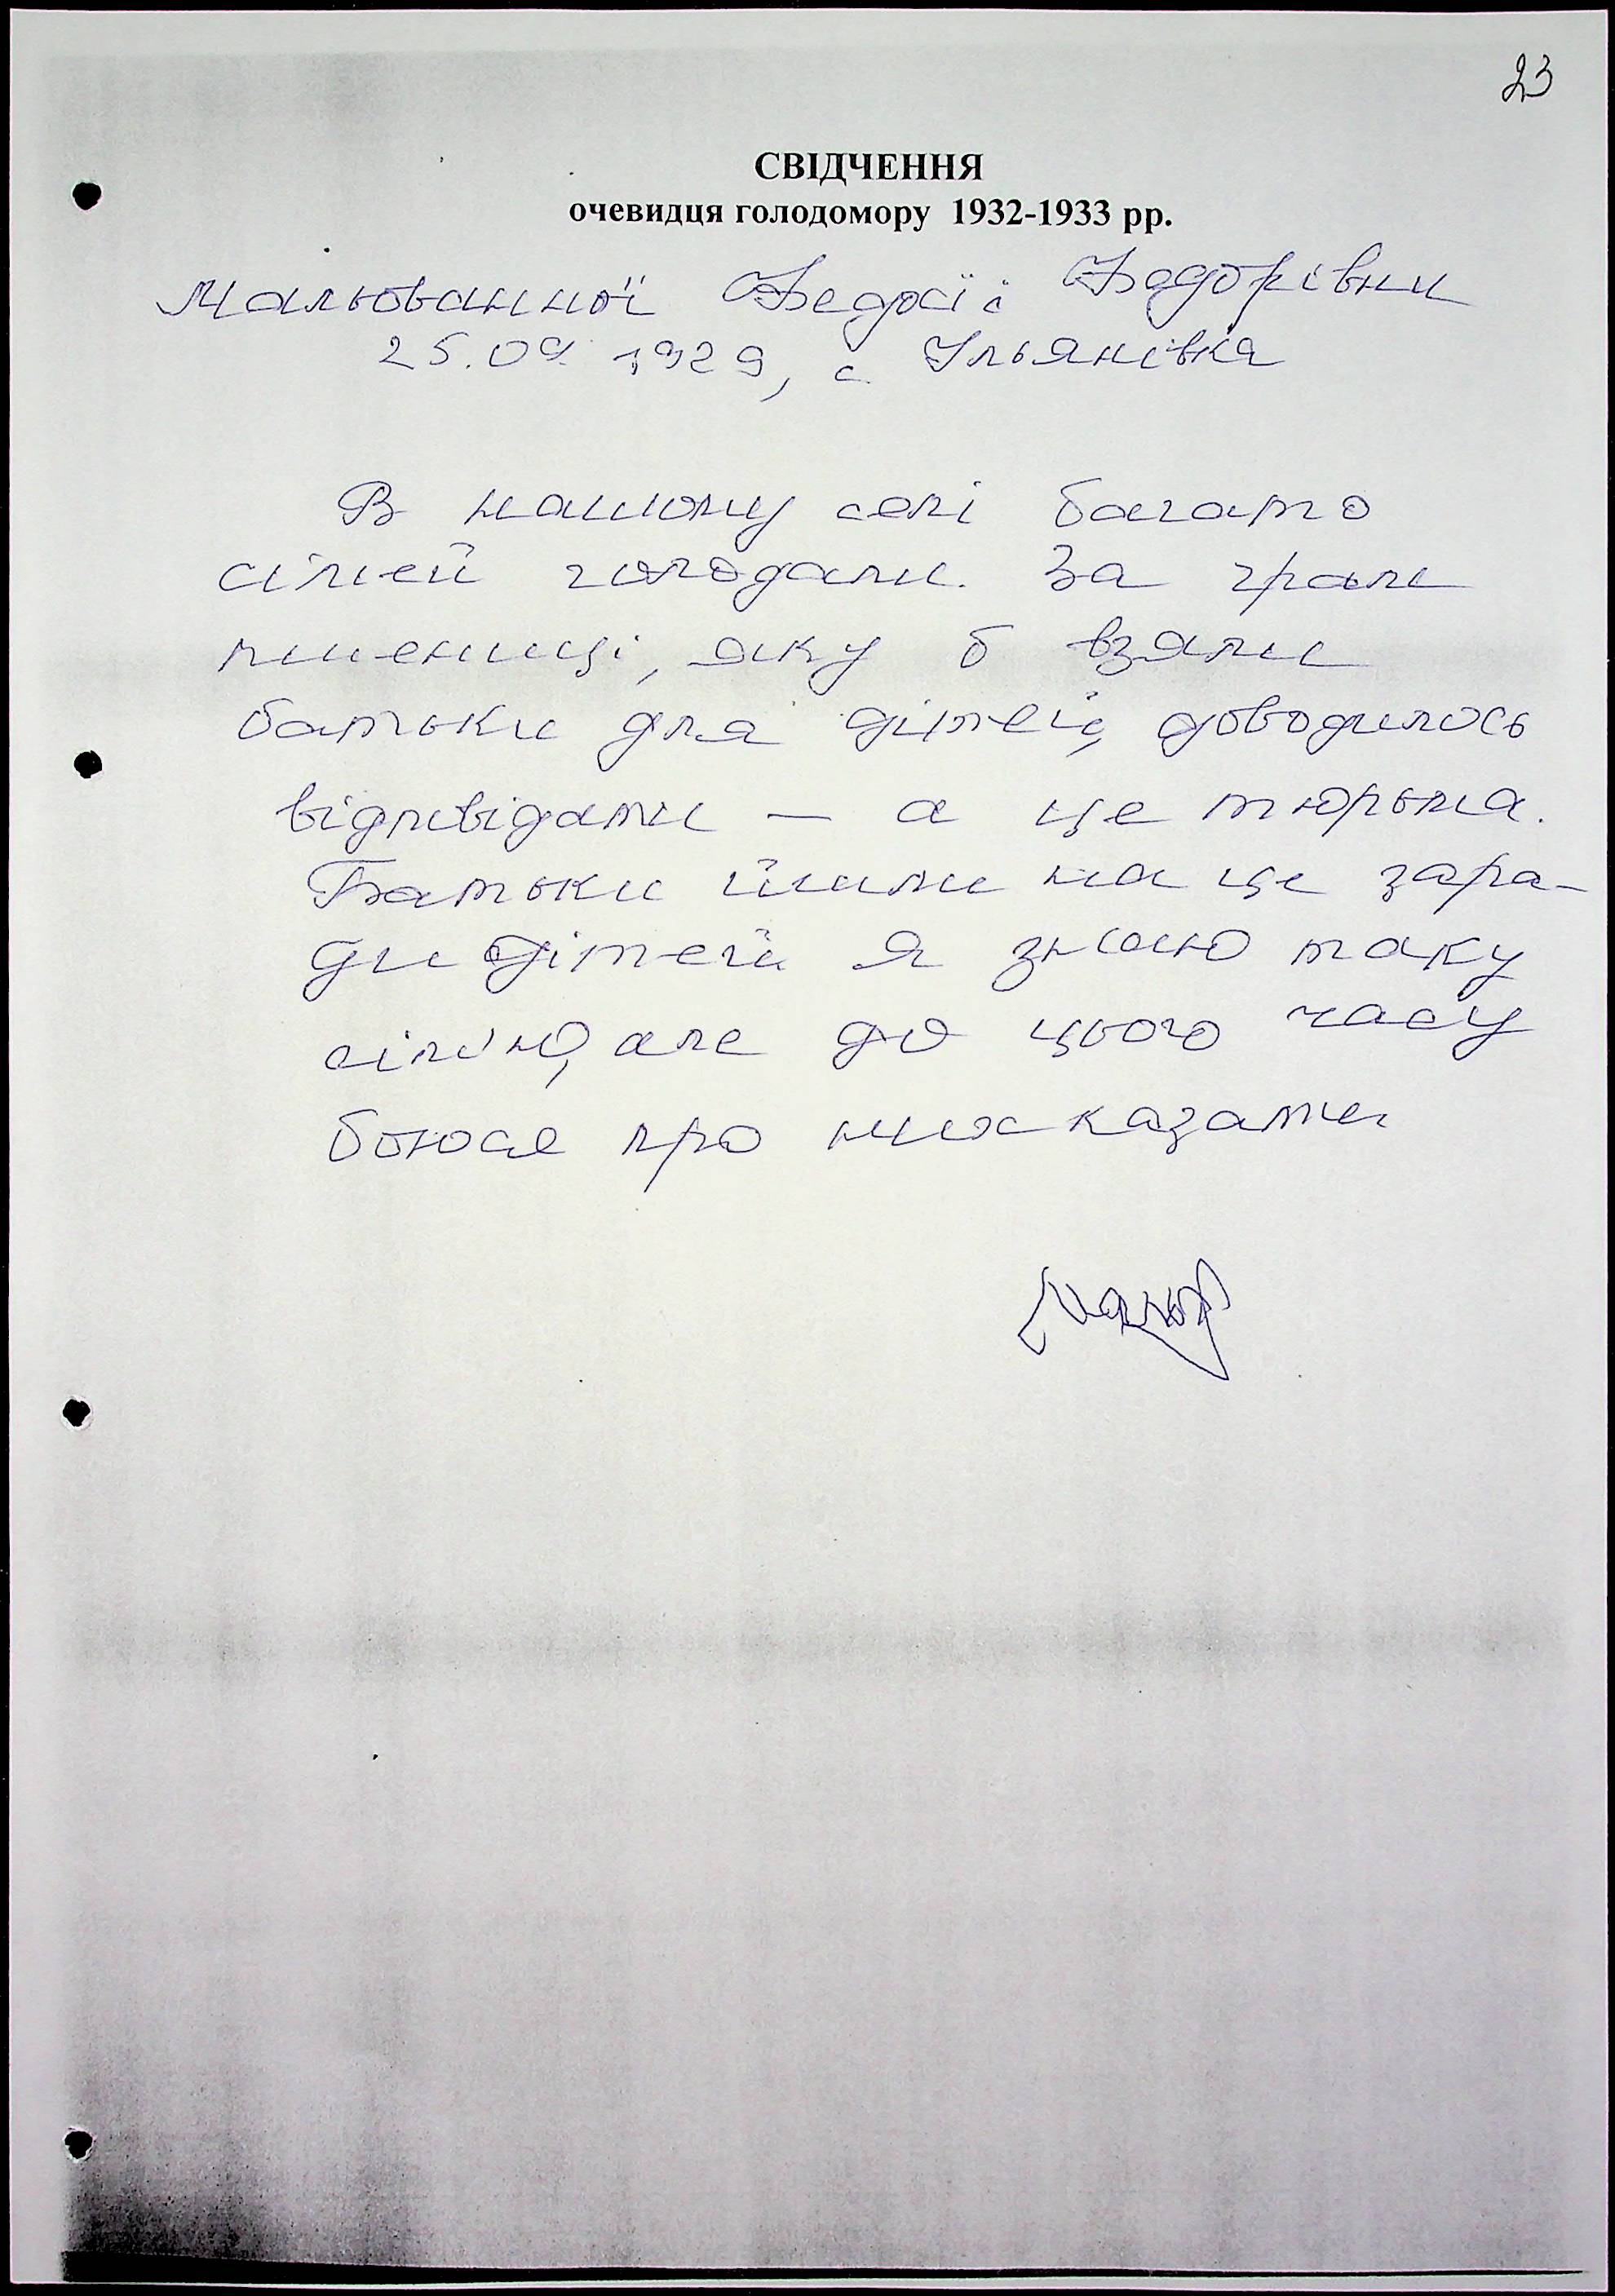 23
СВІДЧЕННЯ
очевидця голодомору 1932-1933 рр.
Мальованної Федосії Федорівни
25.09.1929, с. Ульянівка
В нашому селі багато
сімей голодали. За грам
пшениці, яку б взяли
батьки для дітей, доводилось
відповідати — а це тюрьма.
Батьки йшли на це зара-
ди дітей я знаю таку
сім'ю, але до цього часу
боюся про них казати